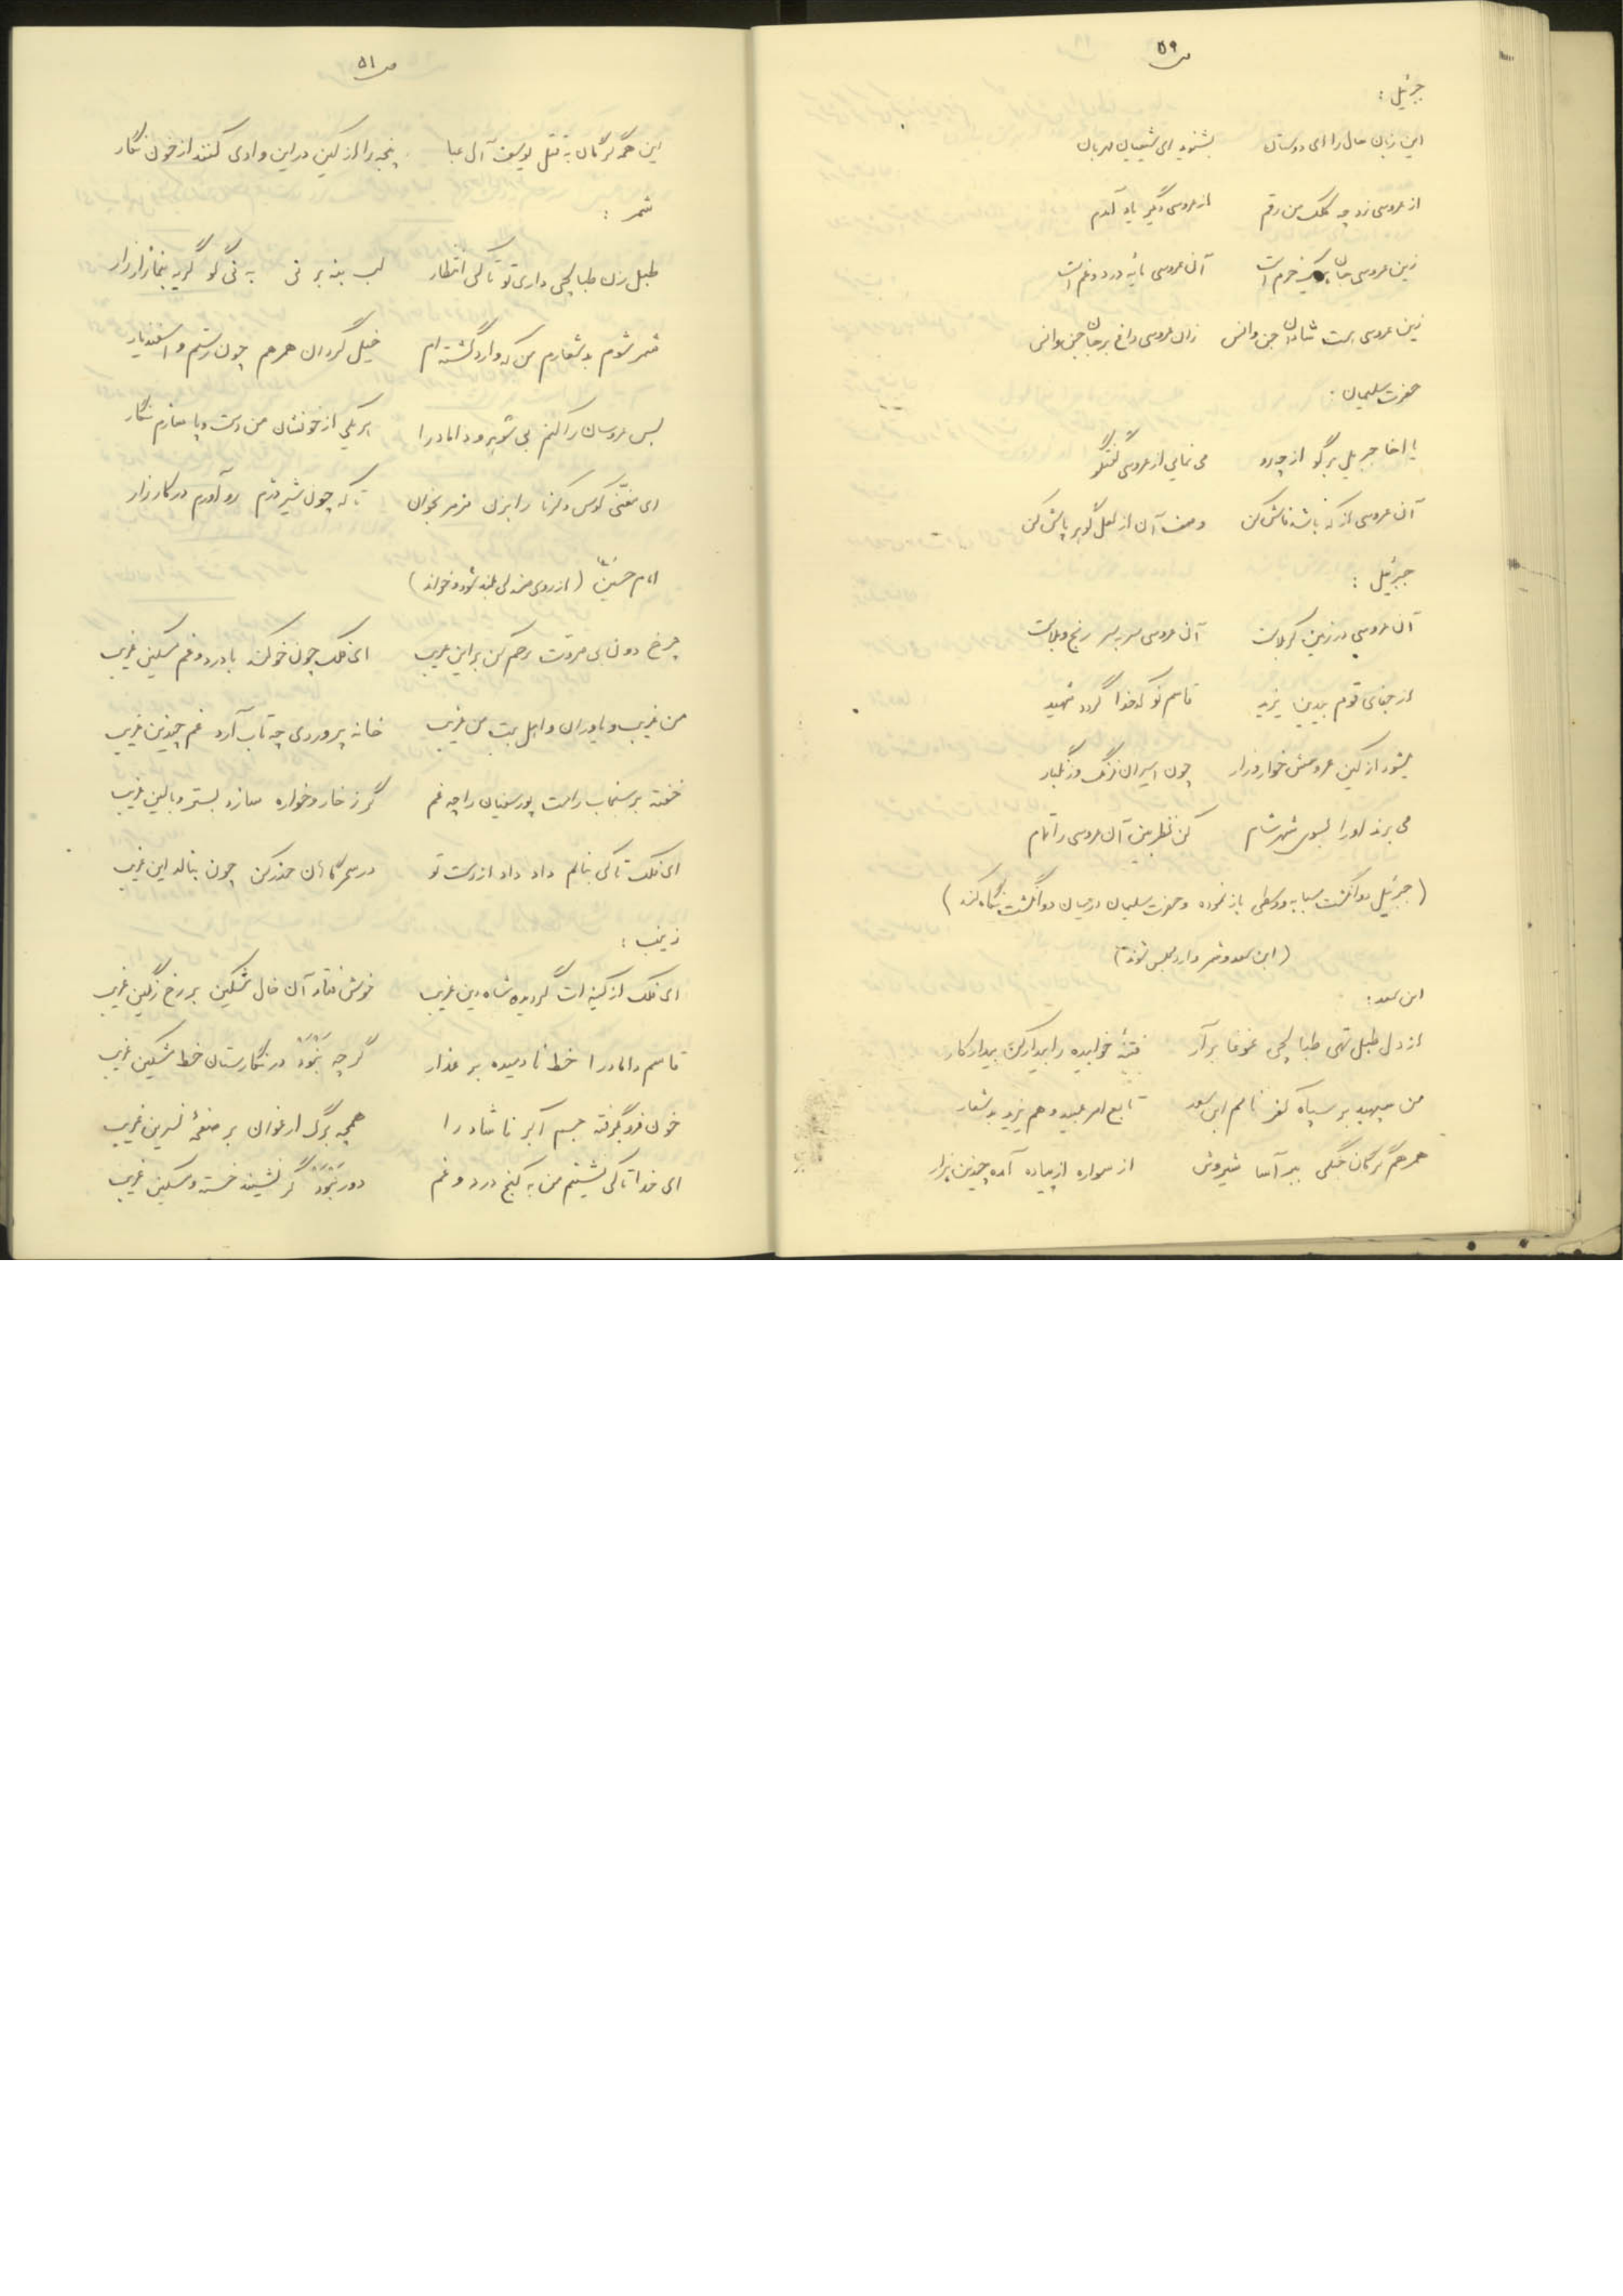 ص ۵۹
جبرئیل :
این زبان حال را ای دوستان بشنوید ای شیعیان مهربان
از عروسی زد چه کلک من رقم از عروسی دگیر یاد آمدم
زین عروسی جان خرم است آن عروسی مایه درد و غم است
زین عروسی هست شادان جن و انس زان عروسی داغ بر جان جن و انس
حضرت سلیمان :
یا اخا جبریل برگو از چه رو می نمایی از عروسی گفتگو
آن عروسی از که باشد فاش کن وصف آن از لعل گوهر پاش کن
جبرئیل :
آن عروسی در زمین کربلاست آن عروسی سربسر رنج و بلاست
از جفای قوم بیدین یزید قاسم نو کدخدا گردد شهید
میشود از کین عروسش خوار و زار چون اسیران فرنگ و زنگبار
می برند او را بسوی شهر شام کن نظر بین آن عروسی را تمام
(جبرئیل دو انگشت سبابه و وسطی باز نموده و حضرت سلیمان در میان دو انگشت نگاه کند)
(ابن سعد و شمر وارد مجلس شوند)
ابن سعد :
از دل طبل تهی طبالچی غوغا برآر فتنهٔ خوابیده را بیدار کن بیدار کار
من سپهبد بر سپاه کفر نامم ابن سعد تابع امر عبید و هم یزید بد شعار
همرهم گرگان جنگی ببر آسا شیروش از سواره از پیاده آمده چندین هزار
ص ۵۱
این همه گرگان به قتل یوسف آل عبا پنجه را از کین در این وادی کنند از خون نگار
شمر :
طبل زن طبالچی داری تو تا کی انتظار لب بنه بر نی به نی گو گریه بنما زار زار
شمر شوم بد شعارم من که وارد گشته ام خیل گردان همرهم چون رستم و اسفندیار
بس عروسان را کنم بی شوهر و داماد را از خونشان من دست و پا سازم نگار
ای مغنی کوس و کرنا را بزن مزمر بخوان تا که چون شیر دژم رو آورم در کارزار
امام حسین (ع) (از روی صندلی بلند شود و خواند)
چرخ دون بی مروت رحم کن بر این غریب ای فلک چون خو کند با درد و غم مسکین غریب
من غریب و یاوران و اهل بیت من غریب خانه پروردی چه تاب آرد غم چندین غریب
خفته بر سنجاب راحت پور سفیان را چه غم گر ز خار و خواره سازد بستر و بالین غریب
ای فلک تا کی بنالم داد داد از دست تو در سحرگاهان حذر کن چون بنالد این غریب
زینب :
ای فلک از کینه ات گردیده شاه دین غریب خوش فتاد آن خال مشکین بر رخ رنگین غریب
قاسم داماد را خط نادمیده بر عذار گرچه نَبوَد در نگارستان خط مشکین غریب
خون فرو بگرفته جسم اکبر ناشاد را همچه برگ ارغوان بر صفحهٔ نسرین غریب
ای خدا تا کی نشینم من به کنج درد و غم دور نَبوَد گر نشیند خسته و مسکین غریب